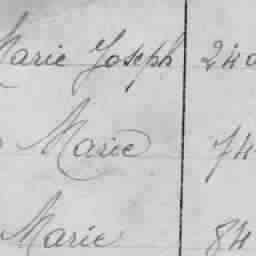 Marie Joseph 240
Marie 74
Marie 84